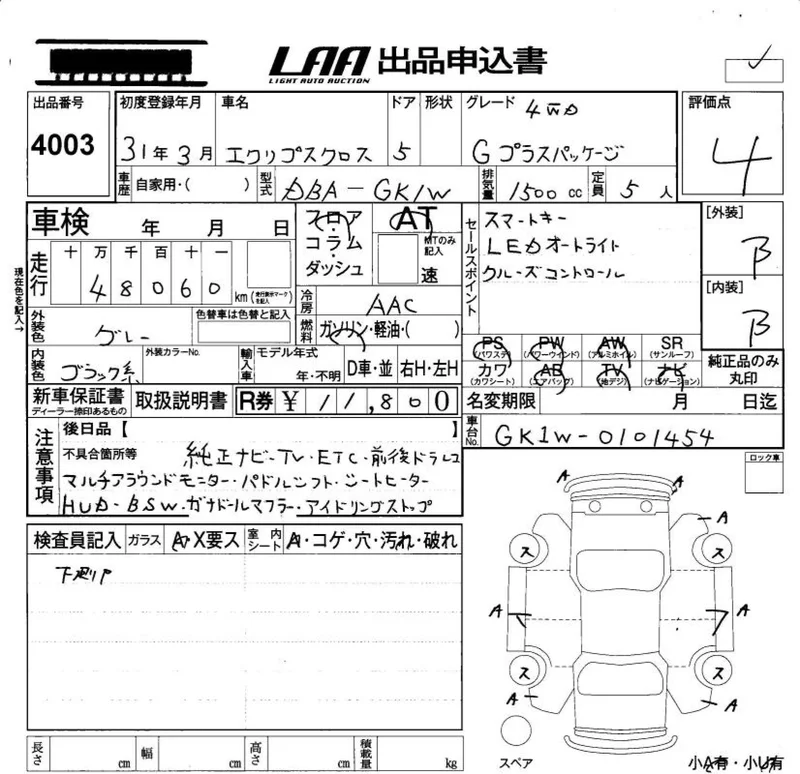 LAA 出品申込書
LIGHT AUTO AUCTION
出品番号 初度登録年月 車名 ドア 形状 グレード 4WD 評価点
4003 31年3月 エクリプスクロス 5 Gプラスパッケージ 4
車歴 自家用・( ) 型式 DBA-GK1W 排気量 1500cc 定員 5人
車検 年 月 日 フロア AT セールスポイント スマートキー [外装]
コラム・ MTのみ記入 LEDオートライト B
走行 十 万 千 百 十 一 ダッシュ 速 クルーズコントロール
48060 km (走行表示マークを記入) [内装]
現在色を記入→
冷房 AAC B
外装色 グレー 色替車は色替と記入 燃料 ガソリン・軽油・( )
PS (パワステ) PW (パワーウインド) AW (アルミホイル) SR (サンルーフ)
内装色 ブラック系 外装カラーNo. 輸入車 モデル年式 年・不明 D車・並 右H・左H
カワ (カワシート) AB (エアバッグ) TV (地デジ) ナビ (ナビゲーション) 純正品のみ丸印
新車保証書 ディーラー捺印あるもの 取扱説明書 R券 ¥ 11,800 名変期限 月 日迄
注意事項 後日品【 】 車台No. GK1W-0101454
不具合箇所等 純正ナビ・TV・ETC・前後ドラレコ
マルチアラウンドモニター・パドルシフト・シートヒーター
HUD・BSW・ガナドールマフラー・アイドリングストップ
ロック車
検査員記入 ガラス A・X要ス 室内シート A・コゲ・穴・汚れ・破れ
A A
A
ス ス
A A
ス ス
A A
スペア 小A有・小U有
長さ cm 幅 cm 高さ cm 積載量 kg